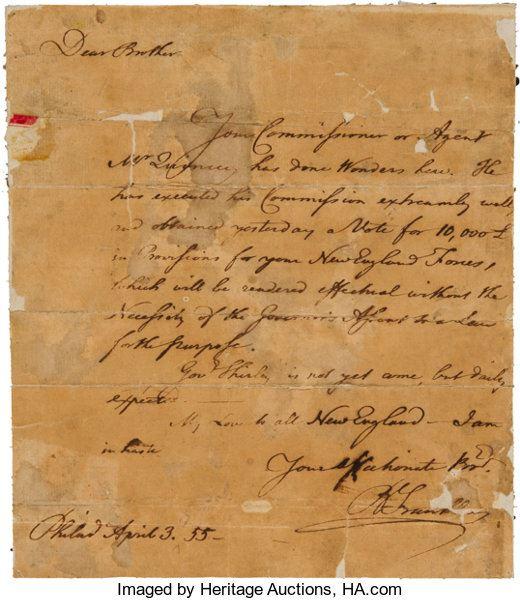 Dear Brother
Your Commissioner or Agent
Mr Quincy has done Wonders here. He
has executed his Commission extreamly well
and obtained yesterday a Vote for 10,000 £
in Provisions for your New England Forces,
which will be rendered effectual without the
Necessity of the Governor's Assent to a Law
for the Purpose.
Govr Shirley is not yet come, but daily
expected.
My Love to all New England — I am
in haste
Your affectionate Bror.
B Franklin
Philad April 3. 55 —
Imaged by Heritage Auctions, HA.com